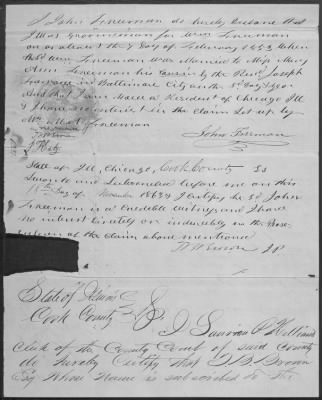 I John Freeman do hereby declare that
I was Groomsman for Wm Freeman
on or about the 5 Day of February 1853 when
he Wm Freeman was Married to Miss Mary
Ann Freeman his by the Revd Joseph
in Baltimore City on the 5 Day
And that I am Now a Resident of Chicago Ill
I have no interest in the Claim Set up by
Mrs Freeman
John Freeman
State of Ill, Chicago, Cook County SS
Sworn to and Subscribed before me on this
18th Day of November 1863 & I Certify the sd John
Freeman is a Credible Witness and I have
no interest directly or indirectly in the Prose-
cution of the claim above mentioned
Brown JP
State of Illinois
Cook County SS I Laurin P Hilliard
Clerk of the County Court of said County
do hereby Certify that Brown
Esq whose name is subscribed to the